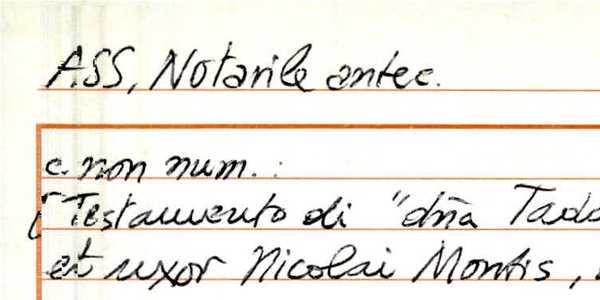 ASS, Notarile antec.
c. non num. :
[Testamento di "dña Tadd
et uxor Nicolai Montis,